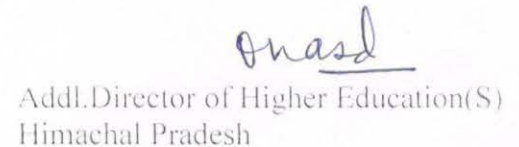 Addl.Director of Higher Education(S)
Himachal Pradesh